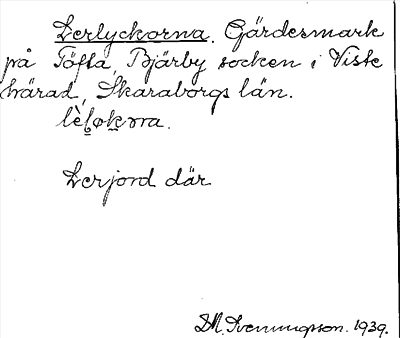 Lerlyckorna. Gärdesmark
på Töfta, Bjärby socken i Viste
härad, Skaraborgs län.
Lerjord där
M. Svenungsson. 1939.